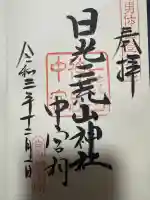 奉拝
日光二荒山神社
中宮祠
令和三年十二月一日